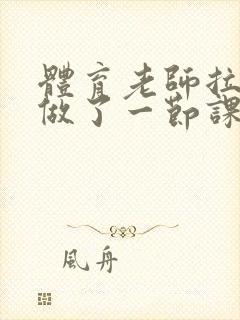 體育老師拉
做了一節課
風舟